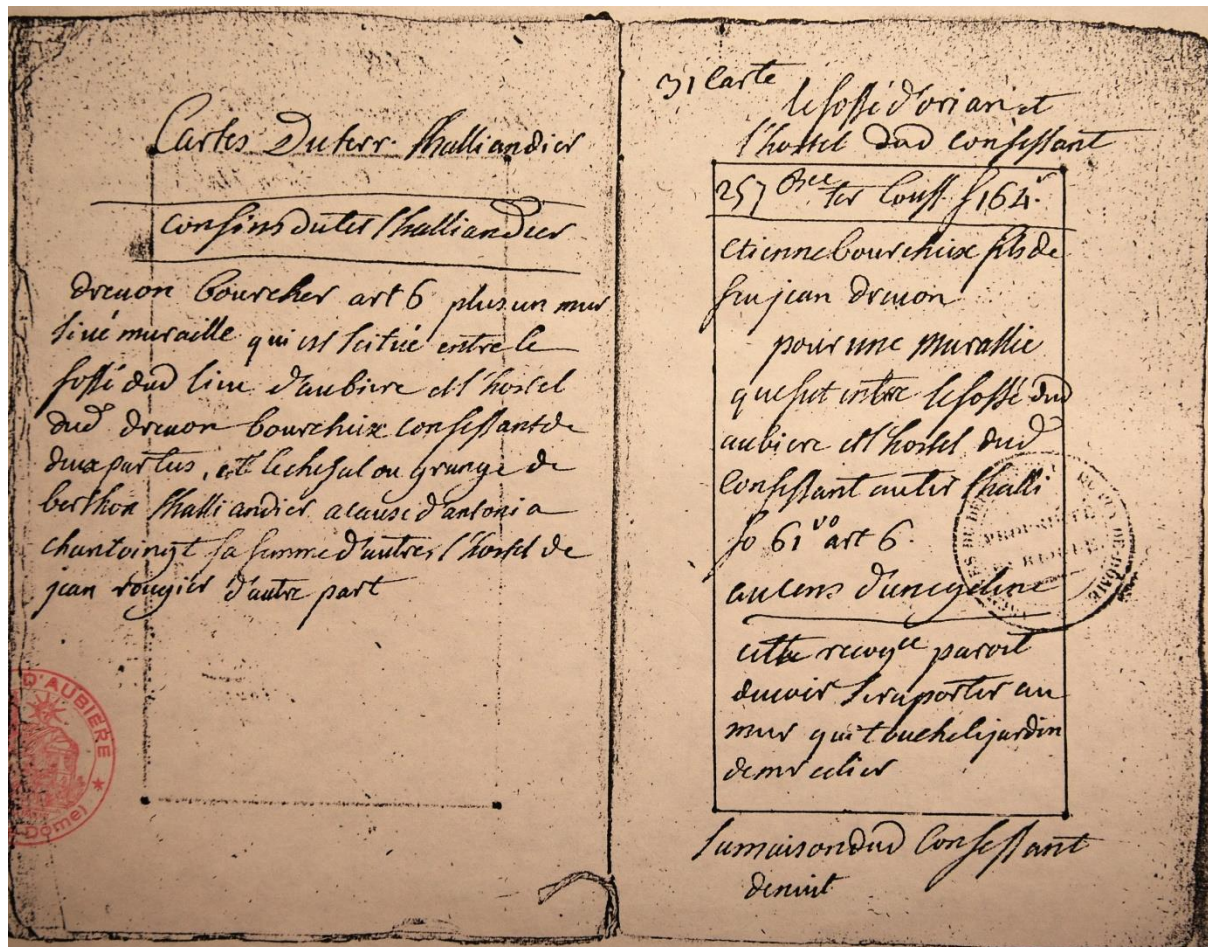 Cartes Du terr. Thalliandier
Confins du ter Thalliandier
dreuon Bourcher art 6 plus un mur
sive muraille qui est scitué entre le
fossé dud lieu d'aubiere et l'hostel
dud dreuon bourcheix confessant de
deux partus, et le chesal ou grange de
berthon Thalliandier a cause d'antonia
chantoingt sa femme d'autres l'hostel de
jean rougier d'autre part
D'AUBIERE
Dome)
31 Carte
le fossé d'oriant et
l'hostel dud confessant
257 ter Conff. f 164.
etienne bourcheix fils de
feu jean dreuon
pour une murallie
que fut entre le fossé dud
aubiere et l'hostel dud
Confessant au ter Thalli
fo 61 vo art 6.
au cens d'une geline
cette recogce paroit
devoir se raporter au
mur qui touche le jardin
de mr celier
PROPRIÉTÉ
PUBLIQUE
PUY-DE-DÔME
la maison dud Confessant
de nuit